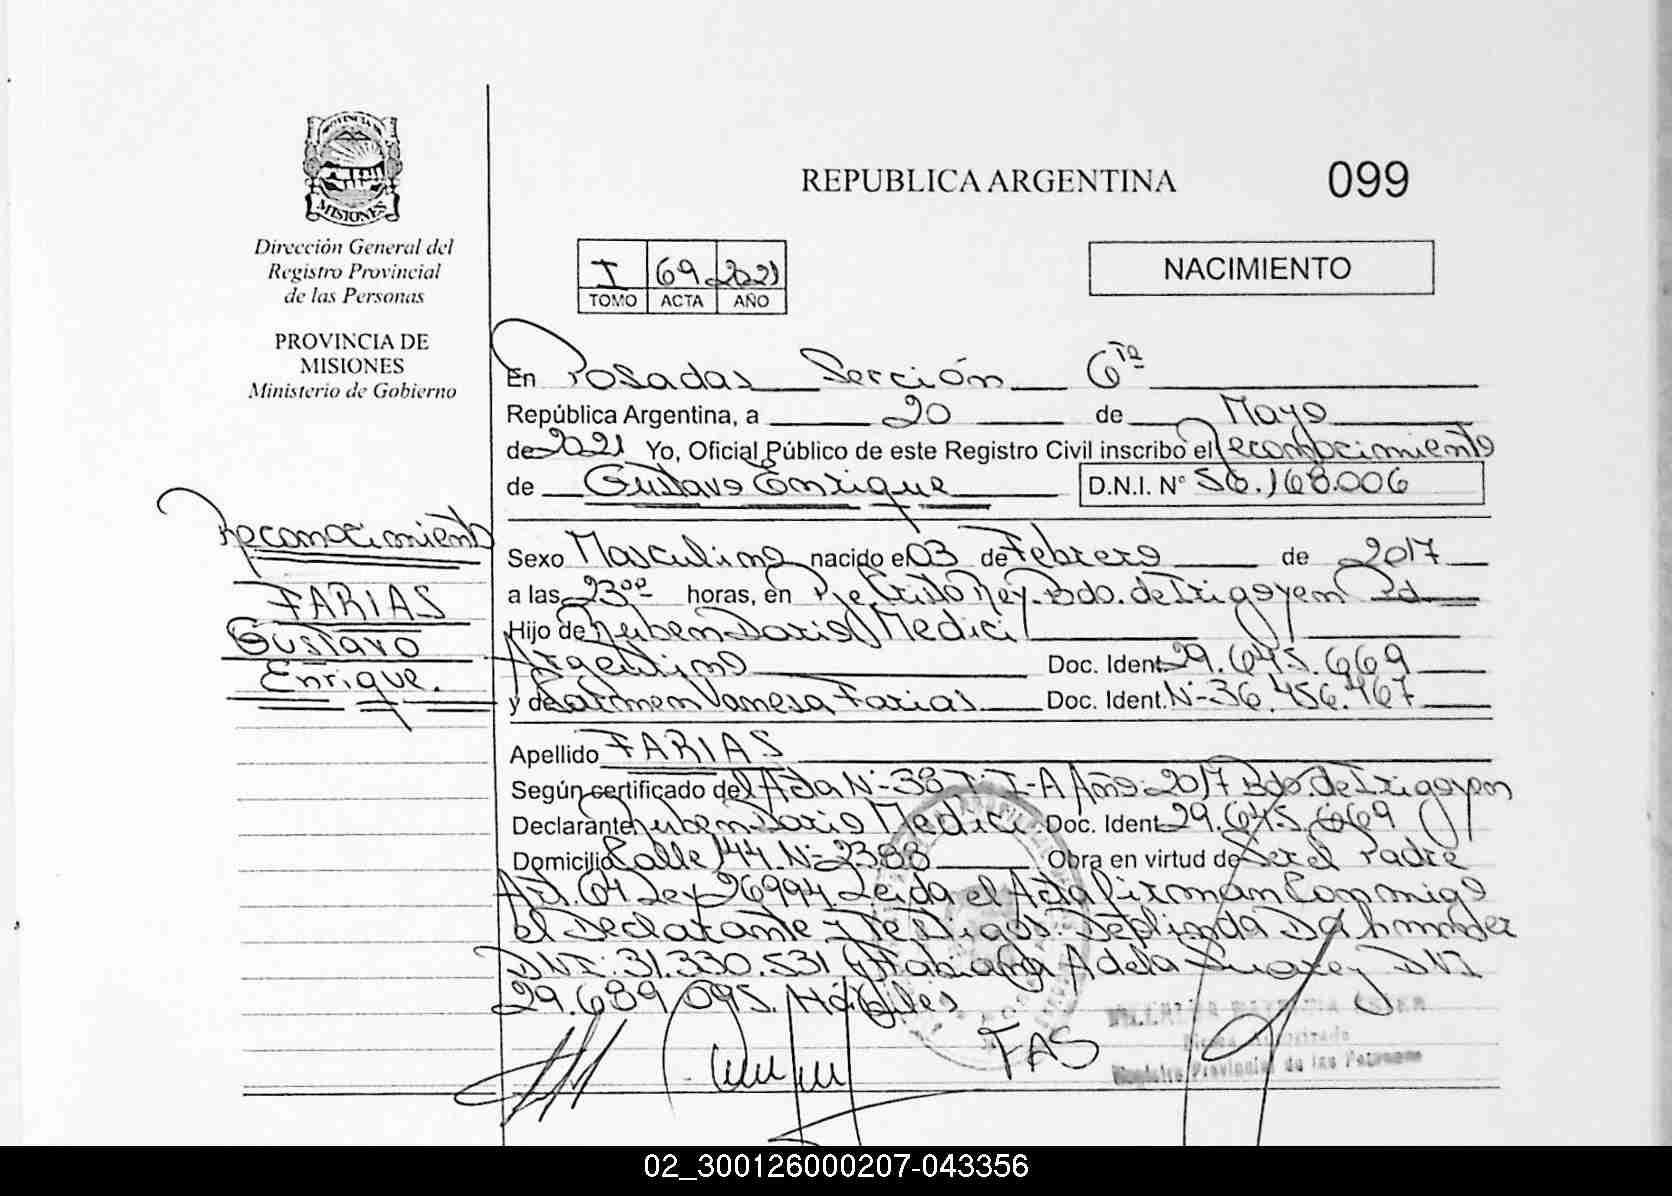 PROVINCIA DE
MISIONES
Dirección General del
Registro Provincial
de las Personas
PROVINCIA DE
MISIONES
Ministerio de Gobierno
REPUBLICA ARGENTINA
099
I 69 2021
TOMO ACTA AÑO
NACIMIENTO
En Posadas Sección 6ta
República Argentina, a 20 de Mayo
de 2021 Yo, Oficial Público de este Registro Civil inscribo el Reconocimiento
de Gustavo Enrique D.N.I. N° 56.168.006
Reconocimiento
FARIAS
Gustavo
Enrique.
Sexo Masculino nacido el 03 de Febrero de 2017
a las 2300 horas, en Pje Cristo Rey. Bdo. de Irigoyen
Hijo de Ruben Dario Medici
Argentino Doc. Ident. 29.645.669
y de Carmen Vanesa Farias Doc. Ident. N-36.456.467
Apellido FARIAS
Según certificado del Acta N-38 T-I-A Año-2017 Bdo. de Irigoyen
Declarante Ruben Dario Medici Doc. Ident. 29.645.669
Domicilio Calle 144 N-2388 Obra en virtud de Ser el Padre
Art. 64 Ley 26994 Leida el Acta firman Conmigo
el Declarante y Testigos:
DNI: 31.330.531 y Fabiana Adela Suarez DNI
29.689.095. Hábiles
FAS
Registro Provincial de las Personas
02_300126000207-043356